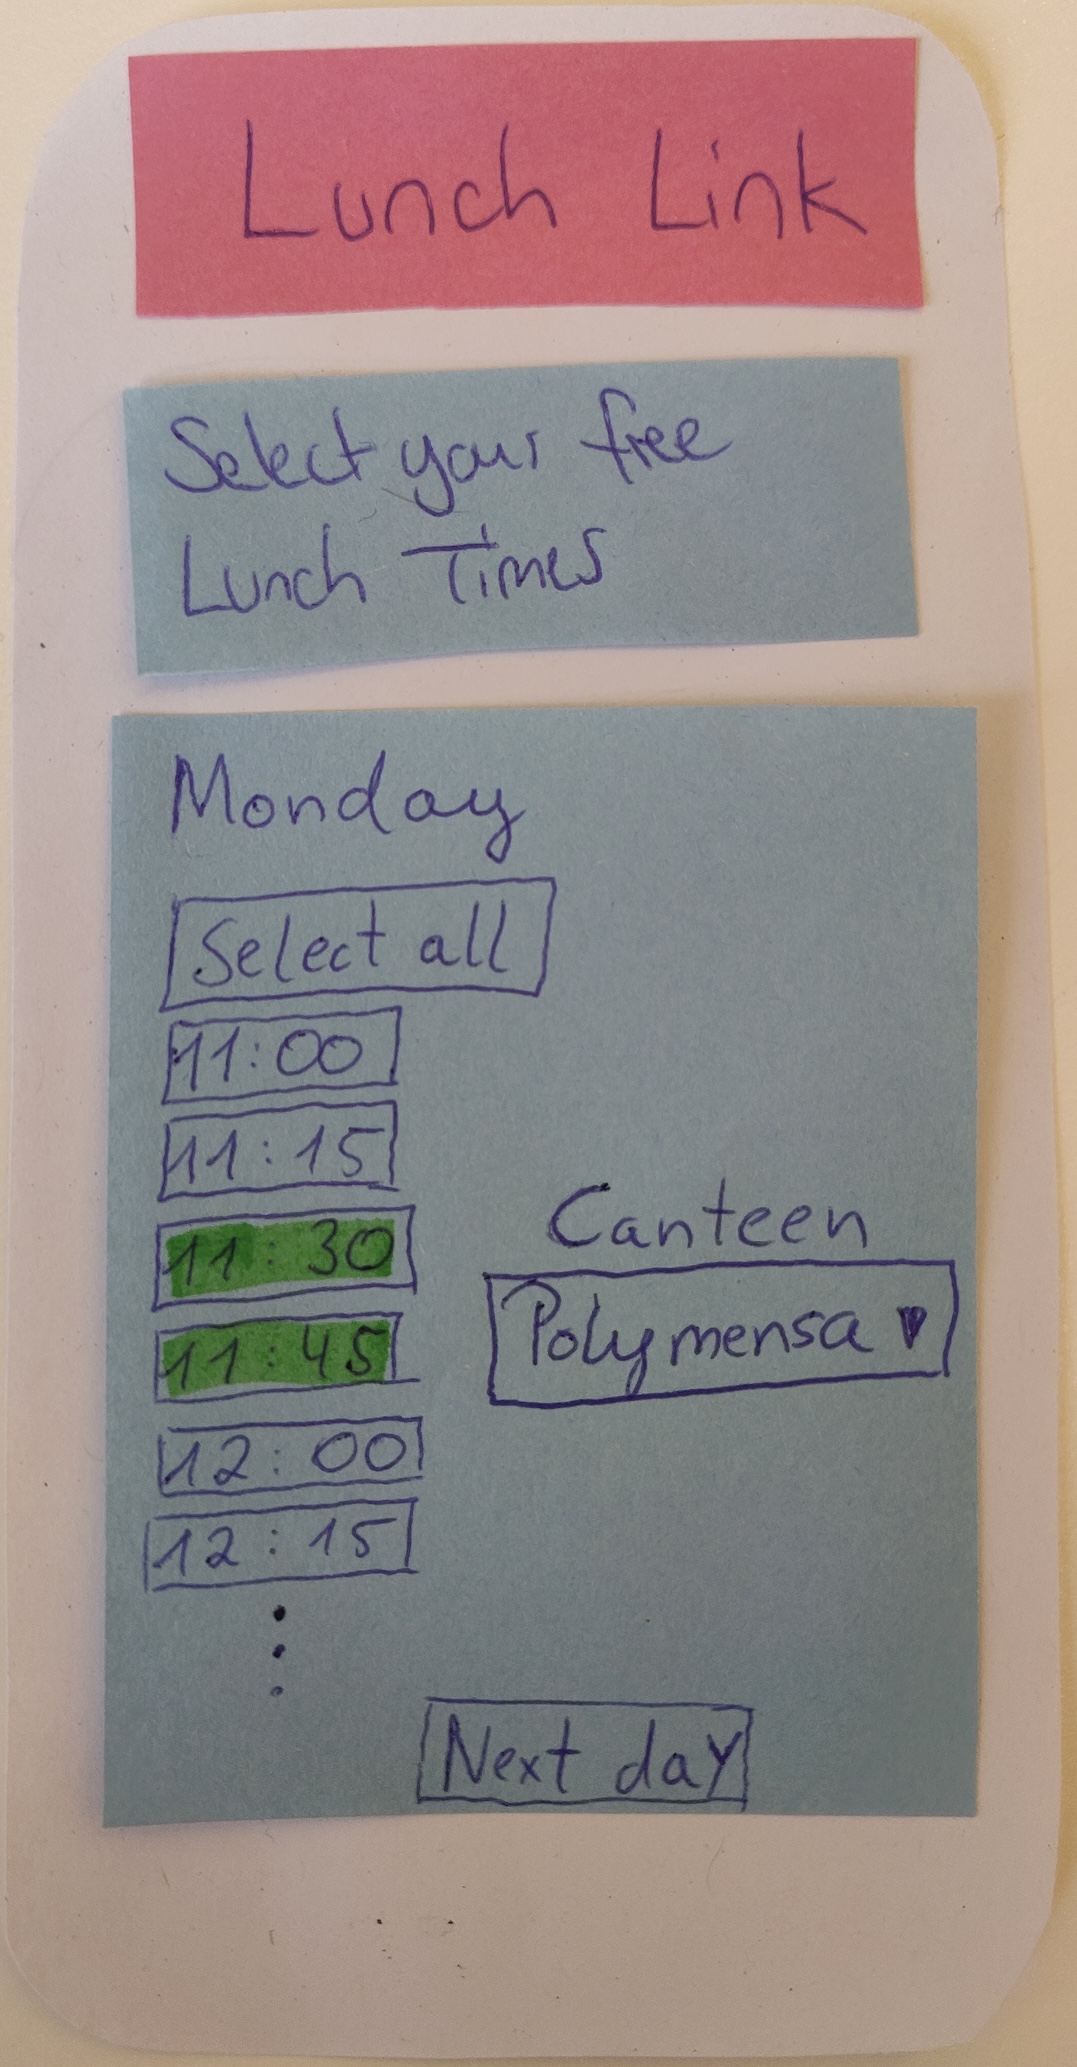 Lunch Link
Select your free
Lunch Times
Monday
Select all
11:00
11:15
11:30
11:45
12:00
12:15
Canteen
Polymensa
Next day